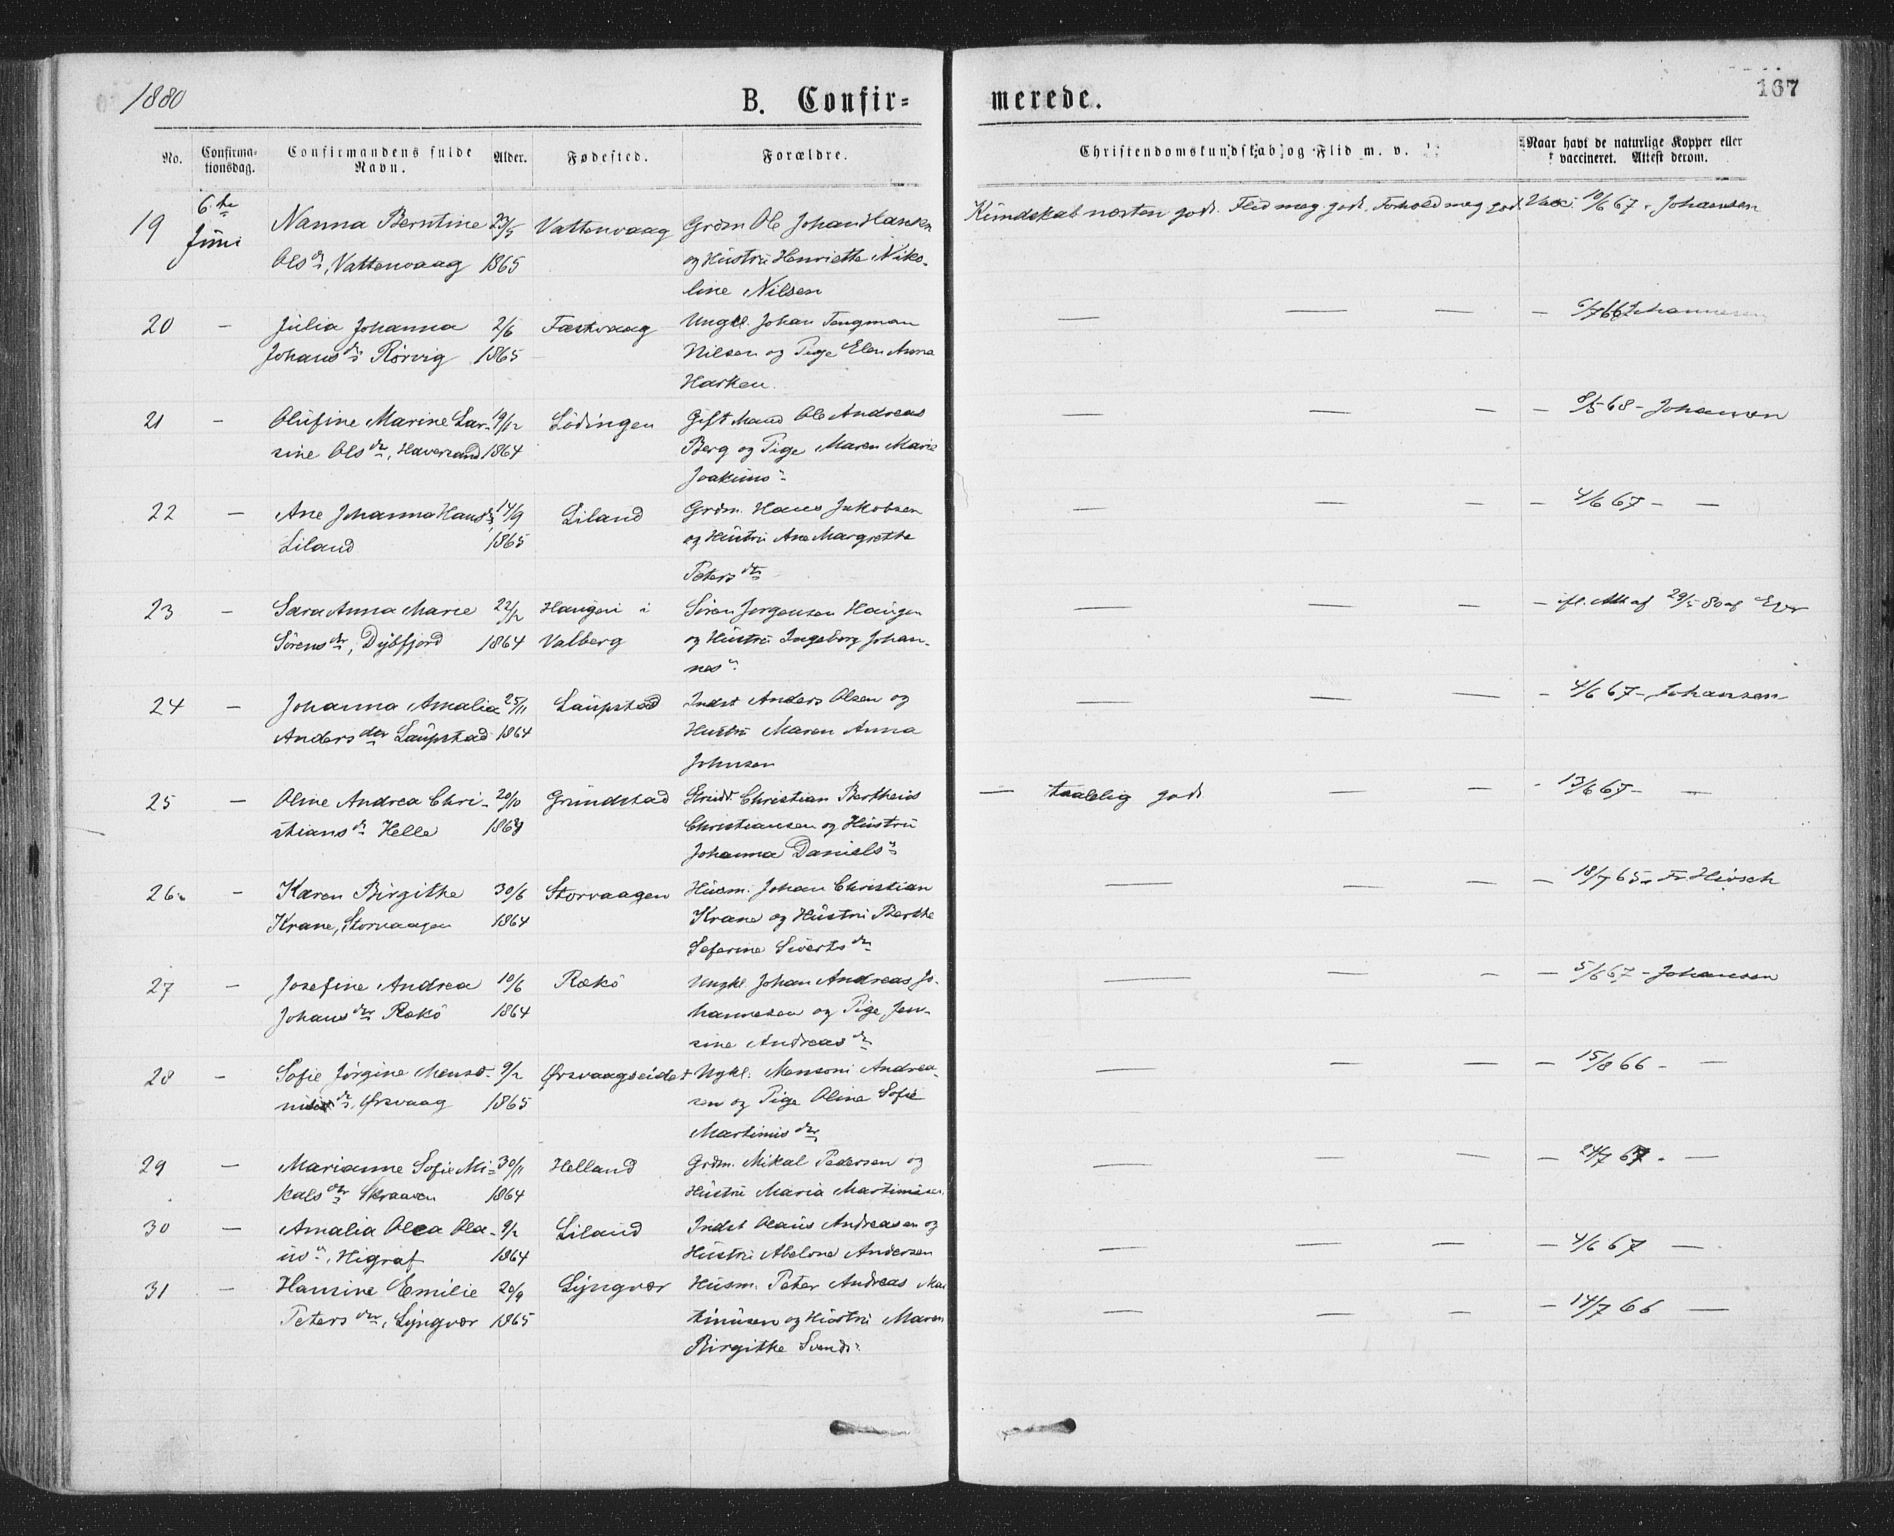 1880
B. Confir=
merede.
167
No. Confirma- Confirmandens fulde Alder. Fødested. Forældre. Christendomskundskab og Flid m. v. Naar havt de naturlige Kopper eller
tionsdag. Navn. vaccineret. Attest derom.
6te
19 Juni Nanna Berntine 23/5 Vattenvaag Grdm Ole Johan Hansen Kundskab næsten godt. Flid meg. godt. Forhold meg god. Vax: 10/6 67 - Johansen
Olsdr, Vattenvaag 1865 og Hustru Henriette Niko-
line Nilsen
20 - Julia Johanna 2/6 Fæstvaag Ungkl. Johan Tengman — — — - 6/7 66 Johannesen
Johansdr Rörvig 1865 Nilsen og Pige Elen Anna
Harken.
21 - Olufine Marine Lar- 19/12 Lödingen Gift Mand Ole Andreas — — — - 8/5 68 - Johansen
sine Olsdr, Haversand 1864 Berg og Pige Maren Marie
Joakims"
22 - Ane Johanna Hansdr 14/9 Liland Grdm. Hans Jakobsen — — — - 4/6 67 - —
Liland 1865 og Hustru Ane Margrethe
Petersdtr
23 - Sara Anna Marie 22/12 Haugen i Sören Jörgensen Haugen — — — - ifl. Att af 29/5 80 af
Sörensdr, Dybfjord 1864 Valberg og Hustru Ingeborg Johan-
nes"
24 - Johanna Amalia 25/11 Laupstad Indst Anders Olsen og — — — - 4/6 67 - Johansen
Andersdtr Laupstad 1864 Hustru Maren Anna
Johnsen
25 - Oline Andrea Chri- 20/10 Grundstad Christian Bertheus — taalelig godt — — - 13/6 67 - —
stiansdr Helle 1864 Christiansen og Hustru
Johanna Daniels"
26 - Karen Birgithe 30/6 Storvaagen Husm. Johan Christian — — — - 18/7 65 - Fr Hirsch
Krane, Storvaagen 1864 Krane og Hustru Berthe
Seferine Sivertsdr
27 - Josefine Andrea 10/6 Rækö Ungkl. Johan Andreas Jo- — — — - 5/6 67 - Johansen
Johansdtr Rækö 1864 hannesen og Pige Jen-
sine Andreasdr
28 - Sofie Jörgine Menso- 9/2 Ørsvaagseidet Ugkl. Mensoni Andrea- — — — - 15/8 66 - —
dr, Ørsvaag 1865 sen og Pige Oline Sofie
Martinisdtr
29 - Marianne Sofie Mi- 30/11 Helland Grdm. Mikal Pedersen og — — — - 24/7 67. —
kalsdtr Skraaven 1864 Hustru Maria Martinusen
30 - Amalia Olea Ola- 9/2 Liland Indst Olaus Andreasen og — — — - 4/6 67 —
us", Higraf 1864 Hustru Abelone Andersen
31 - Hansine Emilie 20/9 Lyngvær Husm. Peter Andreas Mar — — — - 14/7 66 —
Petersdtr, Lyngvær 1865 tinusen og Hustru Maren
Birgithe Svends"